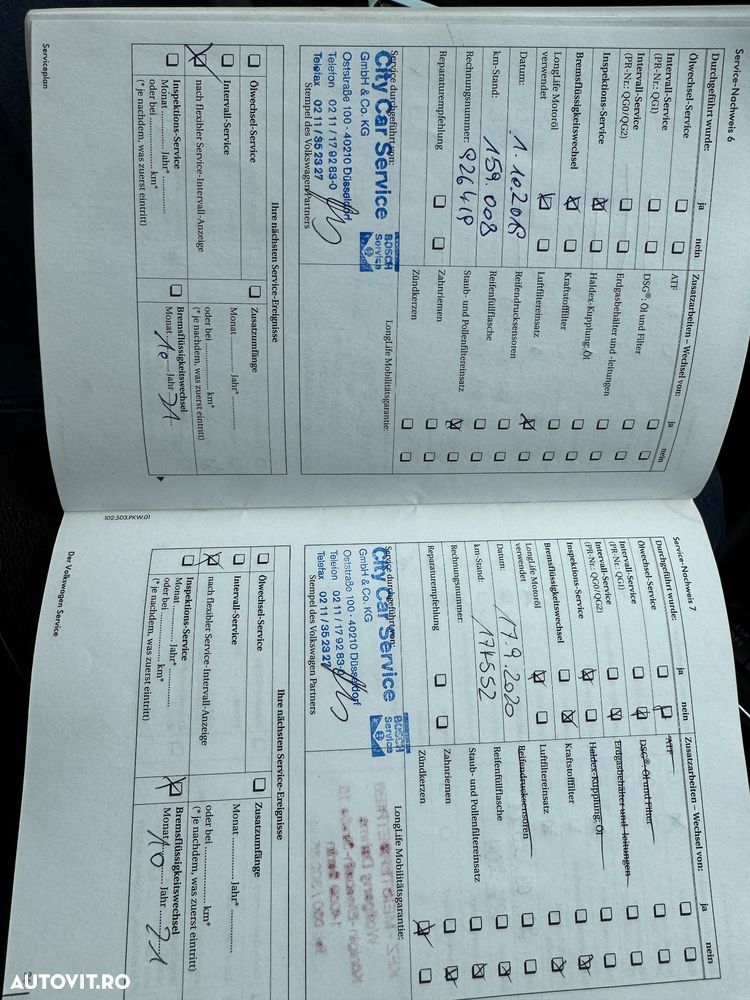 Service-Nachweis 6
Durchgeführt wurde:
ja
nein
Ölwechsel-Service
Intervall-Service
(PR-Nr.: QG1)
Intervall-Service
(PR-Nr.: QG0/QG2)
Inspektions-Service
Bremsflüssigkeitswechsel
LongLife Motoröl
verwendet
Datum: 1.10.2019
km-Stand: 159.008
Rechnungsnummer: 926419
Reparaturempfehlung
Zusatzarbeiten – Wechsel von:
ja
nein
ATF
DSG®: Öl und Filter
Erdgasbehälter und -leitungen
Haldex-Kupplung: Öl
Kraftstofffilter
Luftfiltereinsatz
Reifendrucksensoren
Reifenfüllflasche
Staub- und Pollenfiltereinsatz
Zahnriemen
Zündkerzen
Service durchgeführt von:
LongLife Mobilitätsgarantie:
City Car Service
GmbH & Co. KG
BOSCH
Service
Oststraße 100 · 40210 Düsseldorf
Telefon 02 11 / 17 92 83-0
Telefax 02 11 / 35 23 27
Stempel des Volkswagen Partners
Ihre nächsten Service-Ereignisse
Ölwechsel-Service
Intervall-Service
nach flexibler Service-Intervall-Anzeige
Inspektions-Service
Monat ............ Jahr* ............
oder bei ............ km*
(* je nachdem, was zuerst eintritt)
Zusatzumfänge
Monat ............ Jahr* ............
oder bei ............ km*
(* je nachdem, was zuerst eintritt)
Bremsflüssigkeitswechsel
Monat 10 Jahr 21
Serviceplan
102.5D3.PKW.01
Service-Nachweis 7
Durchgeführt wurde:
ja
nein
Ölwechsel-Service
Intervall-Service
(PR-Nr.: QG1)
Intervall-Service
(PR-Nr.: QG0/QG2)
Inspektions-Service
Bremsflüssigkeitswechsel
LongLife Motoröl
verwendet
Datum: 17.9.2020
km-Stand: 174552
Rechnungsnummer:
Reparaturempfehlung
Zusatzarbeiten – Wechsel von:
ja
nein
ATF
DSG®: Öl und Filter
Erdgasbehälter und -leitungen
Haldex-Kupplung: Öl
Kraftstofffilter
Luftfiltereinsatz
Reifendrucksensoren
Reifenfüllflasche
Staub- und Pollenfiltereinsatz
Zahnriemen
Zündkerzen
Service durchgeführt von:
LongLife Mobilitätsgarantie:
City Car Service
GmbH & Co. KG
BOSCH
Service
Oststraße 100 · 40210 Düsseldorf
Telefon 02 11 / 17 92 83-0
Telefax 02 11 / 35 23 27
Stempel des Volkswagen Partners
Ihre nächsten Service-Ereignisse
Ölwechsel-Service
Intervall-Service
nach flexibler Service-Intervall-Anzeige
Inspektions-Service
Monat ............ Jahr* ............
oder bei ............ km*
(* je nachdem, was zuerst eintritt)
Zusatzumfänge
Monat ............ Jahr* ............
oder bei ............ km*
(* je nachdem, was zuerst eintritt)
Bremsflüssigkeitswechsel
Monat 10 Jahr 21
Der Volkswagen Service
AUTOVIT.RO